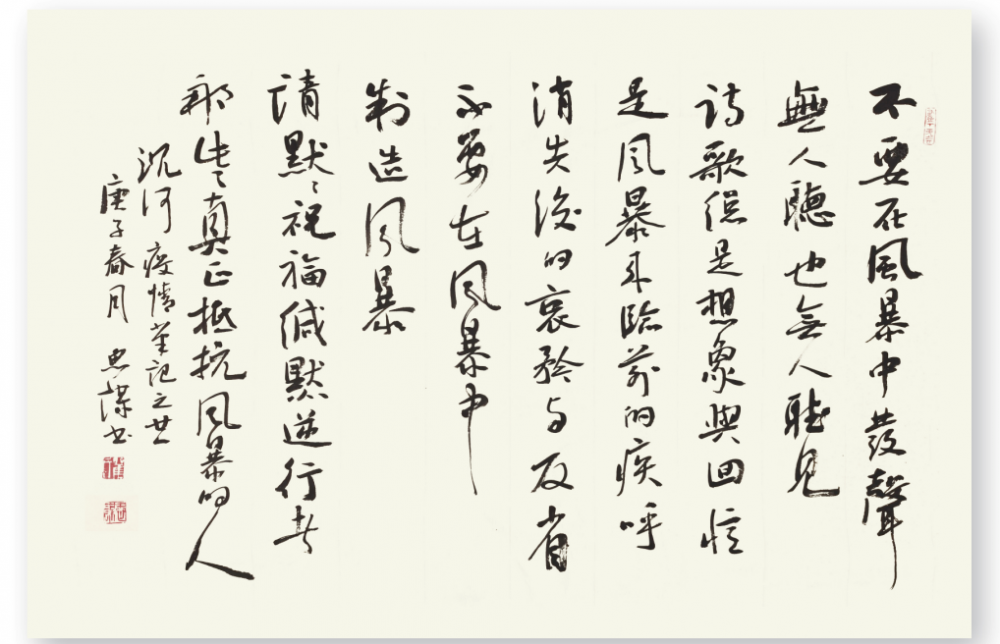 不要在風暴中發聲
無人聽也無人聽見
詩歌總是想象與回憶
是風暴來臨前的疾呼
消失後的哀矜与反省
不要在風暴中
制造風暴
請默〻祝福緘默逆行者
那些真正抵抗風暴的人
沉河 疫情筆記之
庚子春月 書